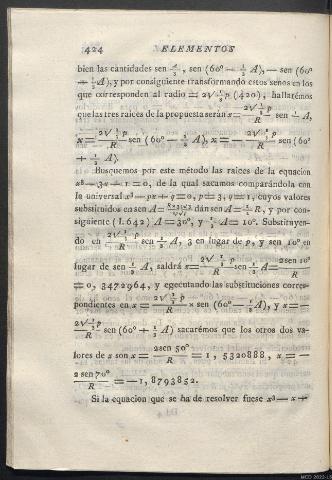 424 ELEMENTOS
bien las cantidades sen A/3, sen (60° — 1/3 A), — sen (60°
+ 1/3 A), y por consiguiente transformando estos senos en los
que corresponden al radio = 2√ 1/3 p (420), hallarémos
que las tres raices de la propuesta serán x = 2√ 1/3 p / R sen 1/3 A,
x = 2√ 1/3 p / R sen (60° — 1/3 A), x = — 2√ 1/3 p / R sen (60°
+ 1/3 A).
Busquemos por este método las raices de la equacion
x³ — 3x + 1 = 0, de la qual sacamos comparándola con
la universal x³ — px + q = 0, p = 3, q = 1, cuyos valores
substituidos en sen A = dan sen A = 1/2 R, y por con-
siguiente (I. 642) A = 30°, y 1/3 A = 10°. Substituyen-
do en 2√ 1/3 p / R sen 1/3 A, 3 en lugar de p, y sen 10° en
lugar de sen 1/3 A, saldrá x = 2√ 1/3 p / R sen 1/3 A = 2 sen 10° / R
= 0, 3472964, y egecutando las substituciones corres-
pondientes en x = 2√ 1/3 p / R × sen (60° — 1/3 A), y x = —
2√ 1/3 p / R sen (60° + 1/3 A) sacarémos que los otros dos va-
lores de x son x = 2 sen 50° / R = 1, 5320888, x = —
2 sen 70° / R = — 1, 8793852.
Si la equacion que se ha de resolver fuese x³ — x +